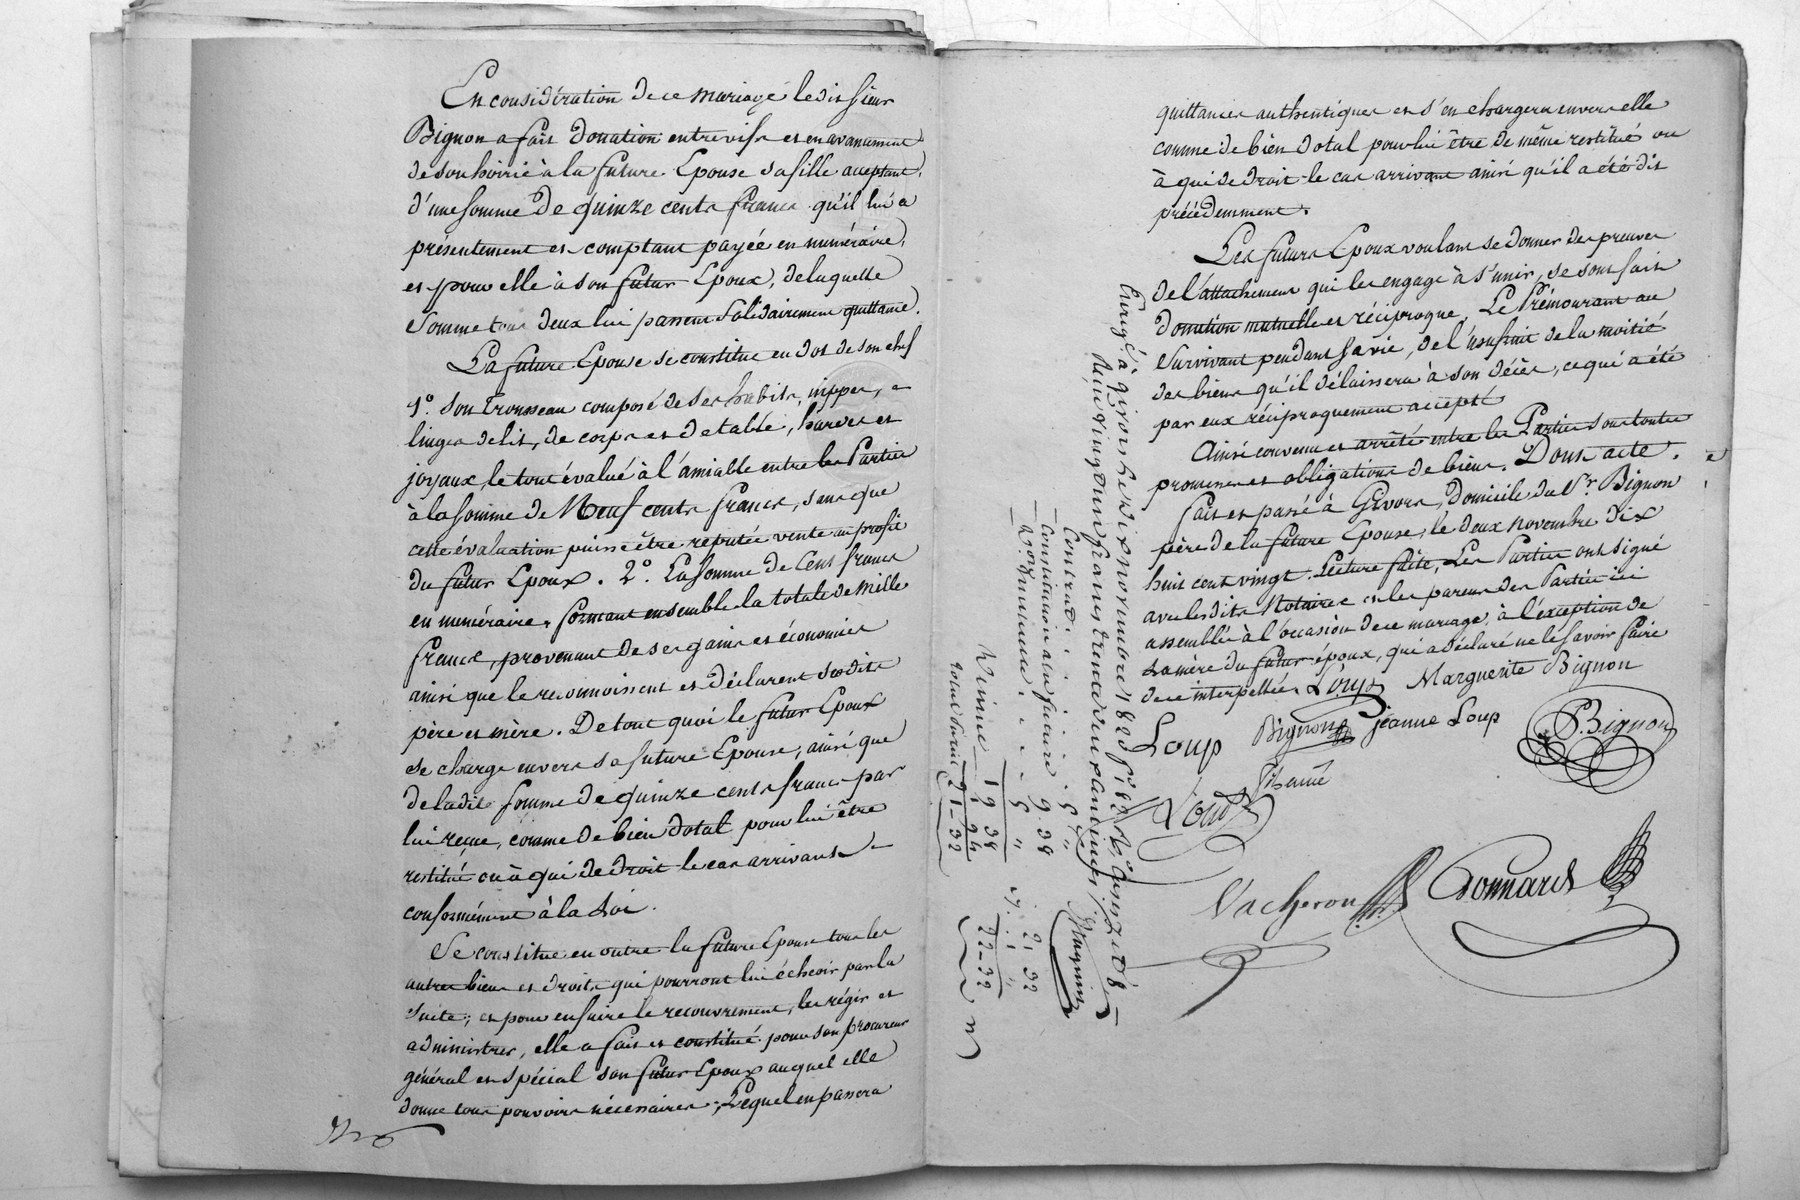 En considération de ce mariage le dit Sieur
Bignon a fait donation entrevifs et en avancement
de son hoirie à la future Epouse sa fille acceptant,
d'une somme de quinze cents francs qu'il lui a
présentement et comptant payée en numéraire,
et pour elle à son futur Epoux, de laquelle
somme tous deux lui passent solidairement quittance.
La future Epouse se constitue en dot de son chef
1°. son Trousseau composé de ses habits, nippes,
linges de lit, de corps et de table, hardes et
joyaux, le tout évalué à l'amiable entre les Parties
à la somme de Neuf cents francs, sans que
cette évaluation puisse être reputée vente au profit
du futur Epoux. 2°. La somme de Cent francs
en numéraire, formant ensemble la totale de Mille
francs, provenant de ses gains et économies
ainsi que le reconnoissent et déclarent sesdits
père et mère. De tout quoi le futur Epoux
se charge envers sa future Epouse, ainsi que
de ladite somme de quinze cents francs par
lui reçue, comme de bien dotal pour lui être
restitué ou à qui de droit le cas arrivant
conformément à la Loi.
Se constitue en outre la future Epouse tous les
autres biens et droits qui pourront lui échoir par la
suite; et pour en faire le recouvrement, les régir et
administrer, elle a fait et constitué pour son procureur
général et spécial son futur Epoux auquel elle
donne tous pouvoirs nécessaires; Lequel en passera
quittances authentiques et s'en chargera envers elle
comme de bien dotal pour lui être de même restitué ou
à qui de droit le cas arrivant ainsi qu'il a été dit
précédemment.
Les futurs Epoux voulant se donner des preuves
de l'attachement qui les engage à s'unir, se sont fait
donation mutuelle et réciproque, Le Prémourant au
survivant pendant sa vie, de l'usufruit de la moitié
des biens qu'il délaissera à son décès, ce qui a été
par eux réciproquement accepté
Ainsi convenu et arrêté entre les Parties sous toutes
promesses et obligations de biens. Dont acte.
fait et passé à Givors, domicile du Sr. Bignon
père de la future Epouse, le deux novembre dix
huit cent vingt. Lecture faite, Les Parties ont signé
avec lesdits Notaires et les parens des Parties ici
assemblés à l'occasion de ce mariage, à l'exception de
la mère du futur époux, qui a déclaré ne le savoir faire
de ce interpellée. Marguerite Bignon
Loup Bignon jeanne Loup P. Bignon
Vacheron Bonnard
Enregé. à givors le dix novembre 1820
Reçu vingt un francs trente deux centimes
Contrat . . . 5 "
Donation . . 9. 38
5 "
19 38
1 94
21-32
21 32
1 "
22-32